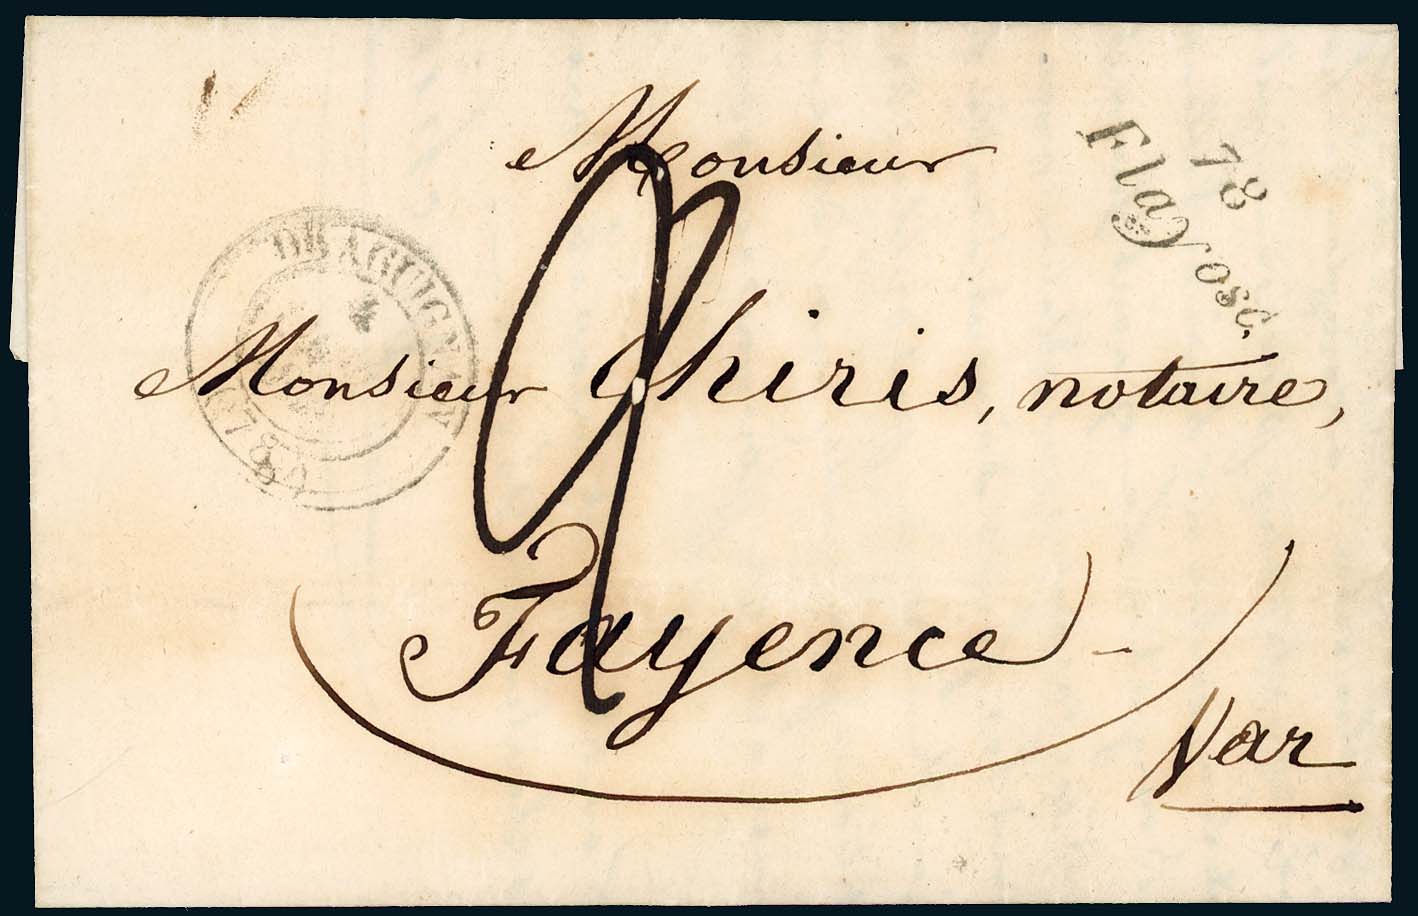 Monsieur
78
Flayosc.
DRAGUIGNAN
Monsieur Chiris, notaire,
Fayence
Var